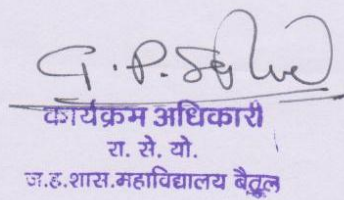 G. P.
कार्यक्रम अधिकारी
रा. से. यो.
ज.ह.शास.महाविद्यालय बैतूल